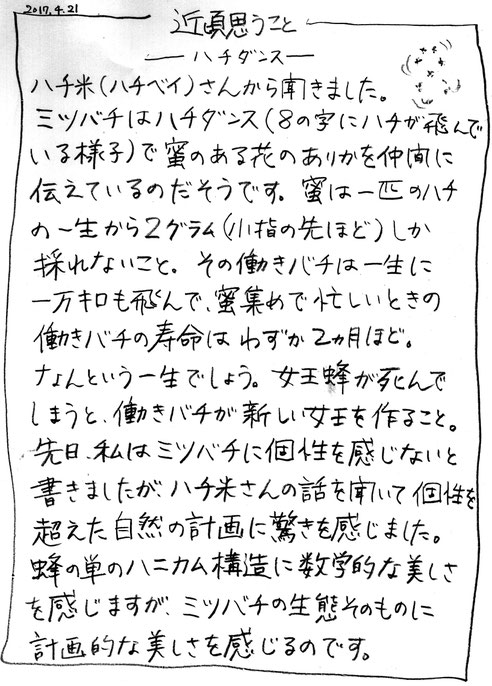 2017.4.21
近頃思うこと
―ハチダンス―
ハチ米(ハチベイ)さんから聞きました。
ミツバチはハチダンス(8の字にハチが飛んで
いる様子)で蜜のある花のありかを仲間に
伝えているのだそうです。蜜は一匹のハチ
の一生から2グラム(小指の先ほど)しか
採れないこと。その働きバチは一生に
一万キロも飛んで、蜜集めで忙しいときの
働きバチの寿命はわずか2ヵ月ほど。
なんという一生でしょう。女王蜂が死んで
しまうと、働きバチが新しい女王を作ること。
先日、私はミツバチに個性を感じないと
書きましたが、ハチ米さんの話を聞いて個性を
超えた自然の計画に驚きを感じました。
蜂の単のハニカム構造に数学的な美しさ
を感じますが、ミツバチの生態そのものに
計画的な美しさを感じるのです。